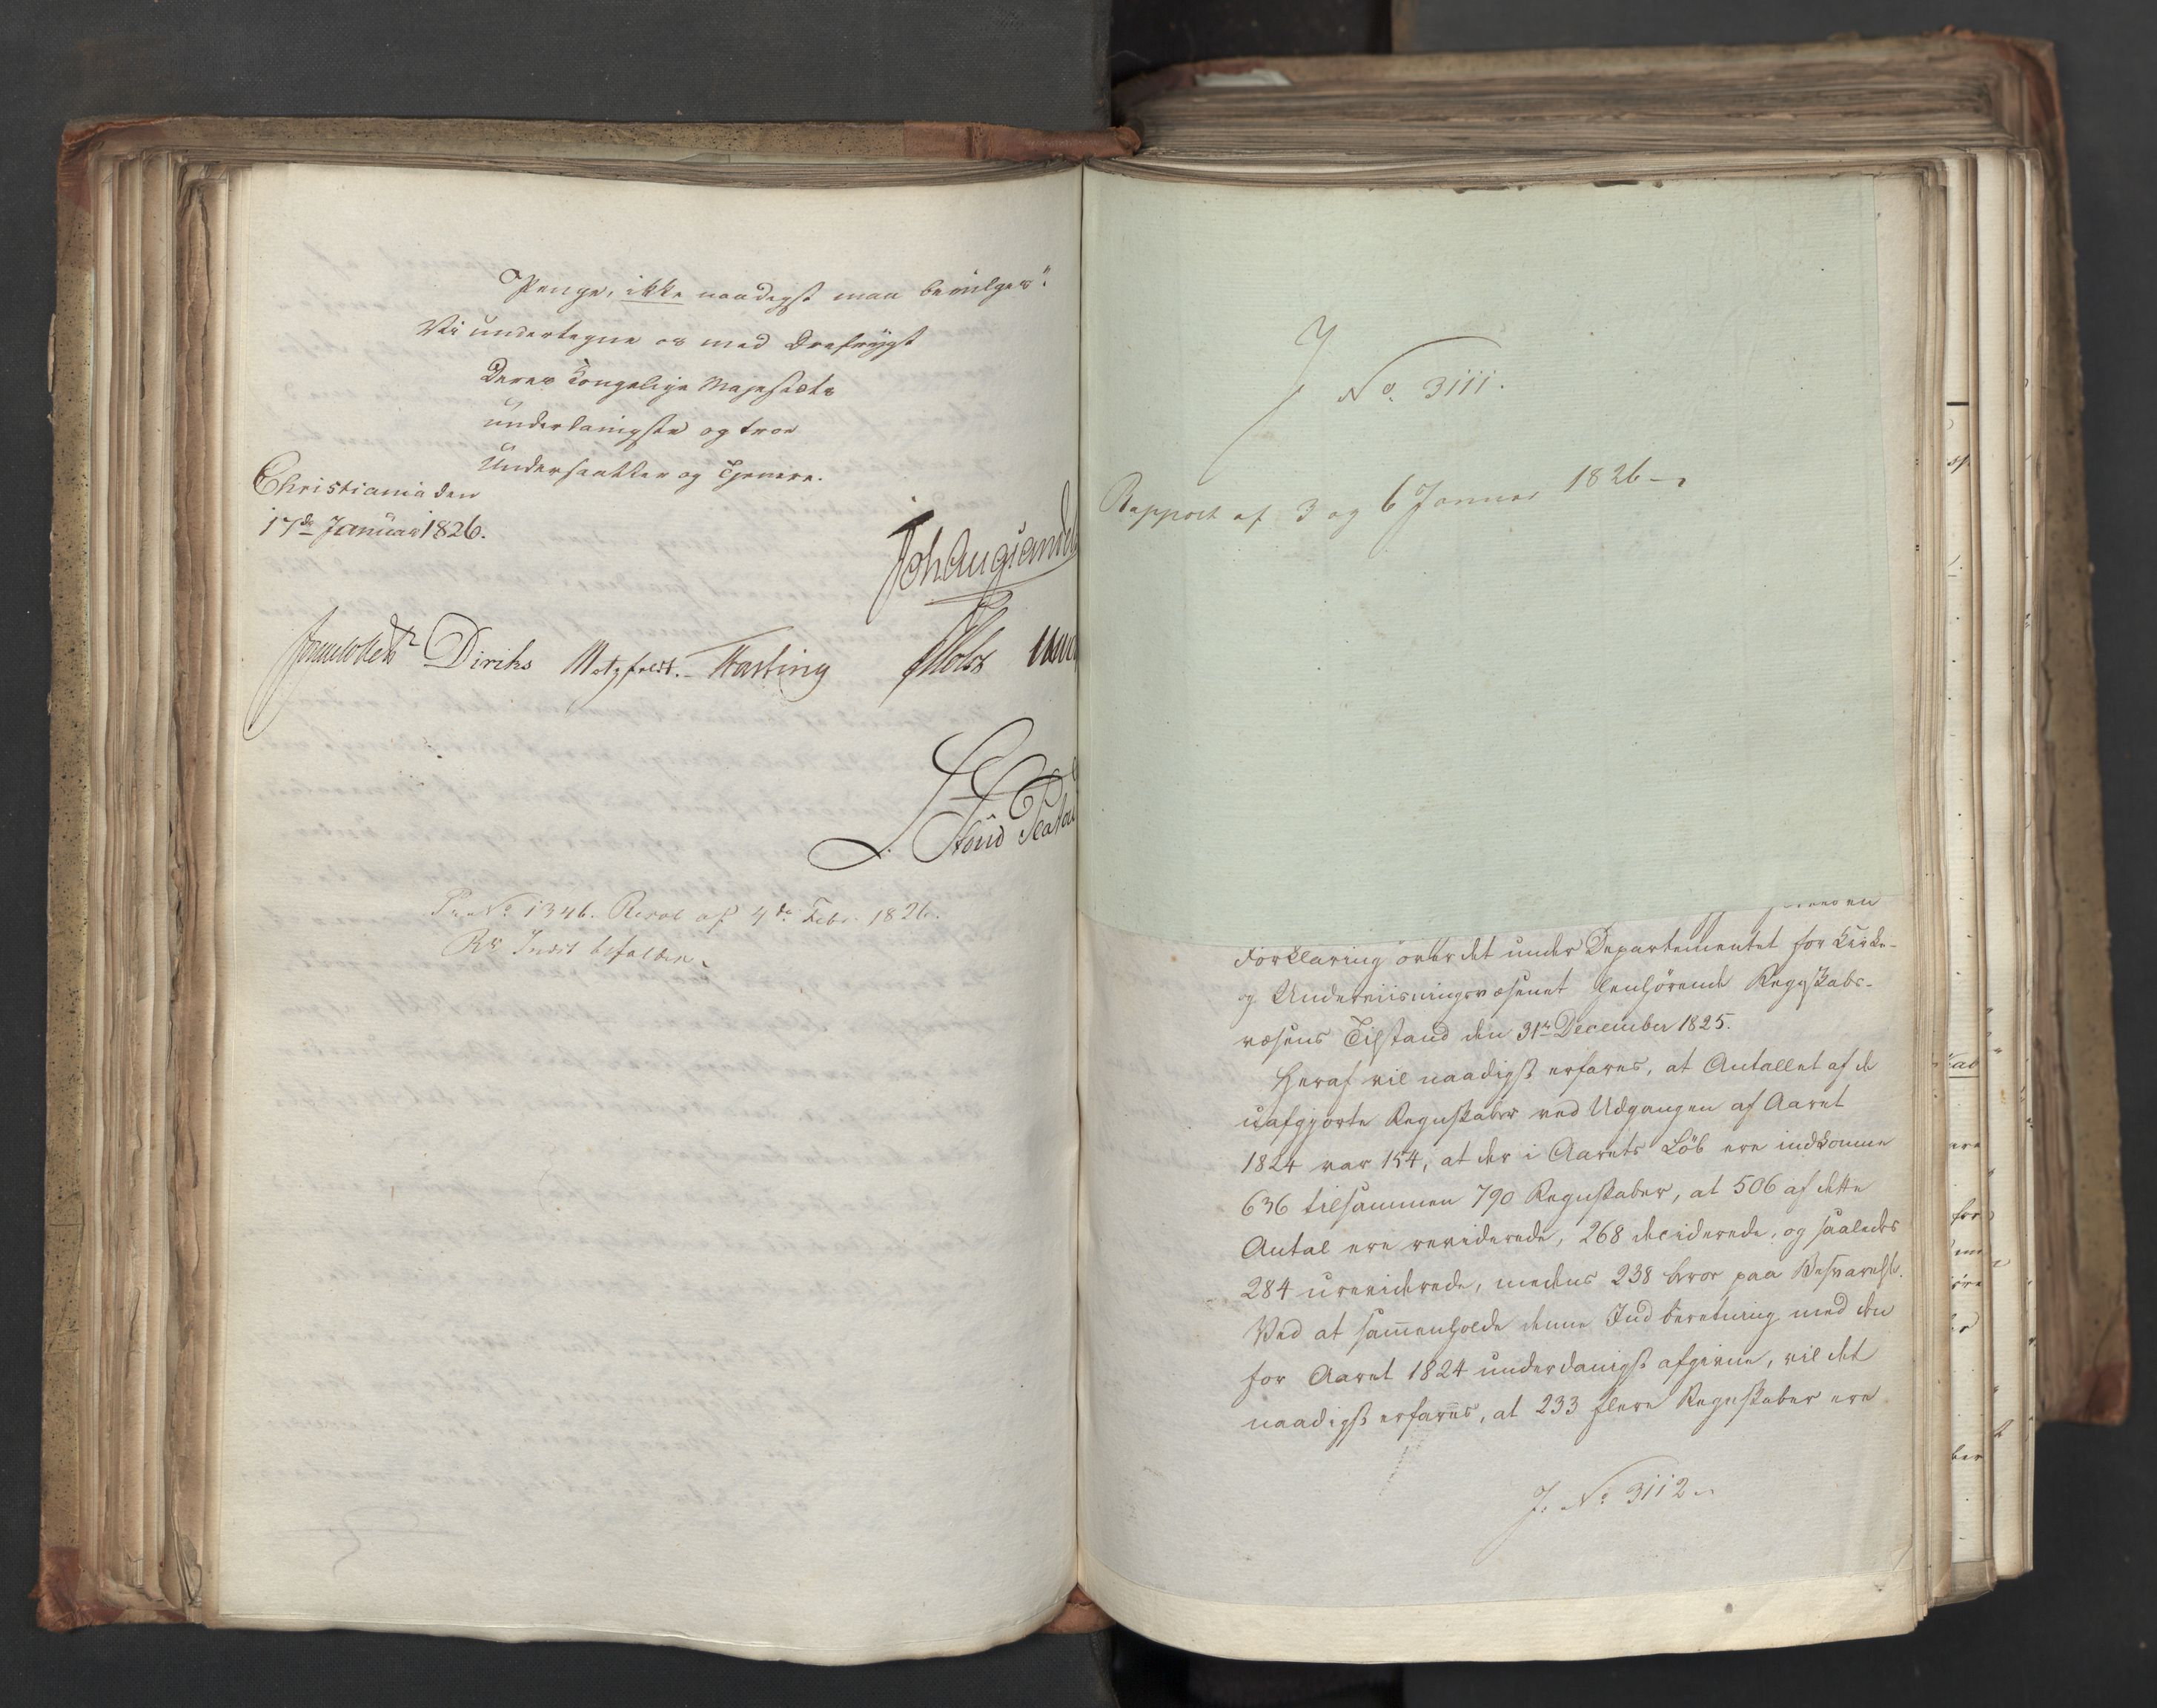 Penge, ikke naadigst maa bevilges".
Vi undertegne os med Ærefrygt
Deres Kongelige Majestæts
underdanigste og troe
Undersaatter og Tjenere.
Christiania den
17de Januar 1826.
Diriks Motzfeldt. Fasting Holst
No. 1346. Resol. af 4de Febr. 1826.
Indst. befalden.
J No. 3111.
Rapport af 3 og 6 Januar 1826
Forklaring over det under Departementet for Kirke-
og Underviisningsvæsenet henhörende Regnskabs-
væsens Tilstand den 31te December 1825.
Heraf vil naadigst erfares, at Antallet af de
uafgjorte Regnskaber ved Udgangen af Aaret
1824 var 154, at der i Aarets Löb ere indkomne
636 tilsammen 790 Regnskaber, at 506 af dette
Antal ere reviderede, 268 deciderede, og saaledes
284 ureviderede, medens 238 beroe paa Besvarelse.
Ved at sammenholde denne Indberetning med den
for Aaret 1824 underdanigst afgivne, vil det
naadigst erfares, at 233 flere Regnskaber ere
J. No 3112